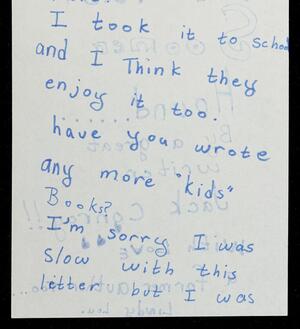 I took it to school
and I Think they
enjoy it too.
have you wrote
any more "kids"
Books?
I'm sorry I was
slow with this
letter but I was